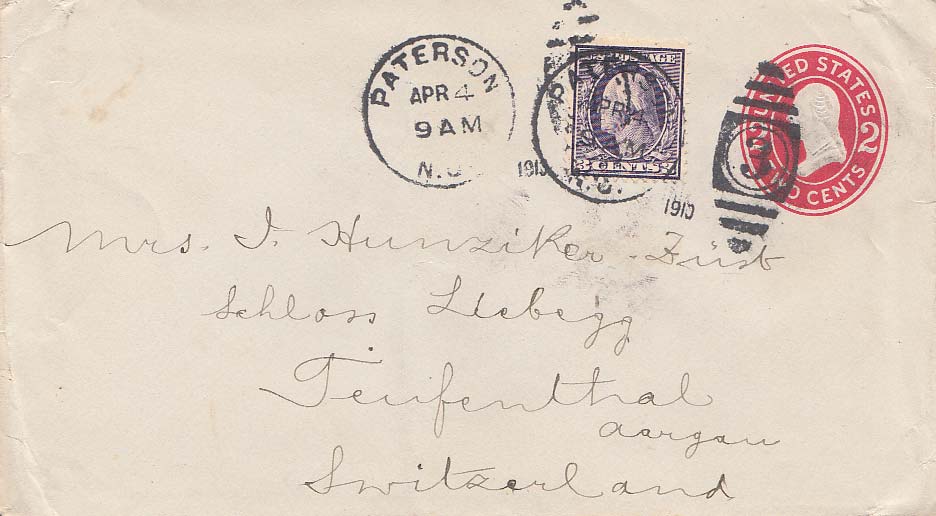 PATERSON
APR 4
9 AM
N.J.
1910
POSTAGE
3 CENTS 3
PATERSON
APR 4
AM
N.J.
1910
UNITED STATES
2
TWO CENTS
Mrs. I. Hunziker-Züst
Schloss Liebegg
Teufenthal
Aargau
Switzerland